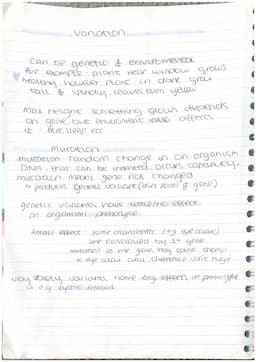 Variation
Can be genetic & environmental
for example plant near window grows
healthy however plant in dark grow
tall & spindly, leaves turn yellow
Max height something grows depends
on gene but enviroment also affects
it - diet, sleep ecc
Mutation
mutation - random change in an organism
DNA that can be inherited. occurs continuously.
mutation means gene not changed
↳ produces genetic variant (diff form of gene)
genetic variants have little/no effect
on organisms phenotype.
Small effect - some characteristic (e.g eye colour)
are controlled by 1+ gene
mutation in one gene may cause change
to eye colour but difference isn't huge
very rarely variants have big effects on phenotype
↳ e.g cystic fibrosis